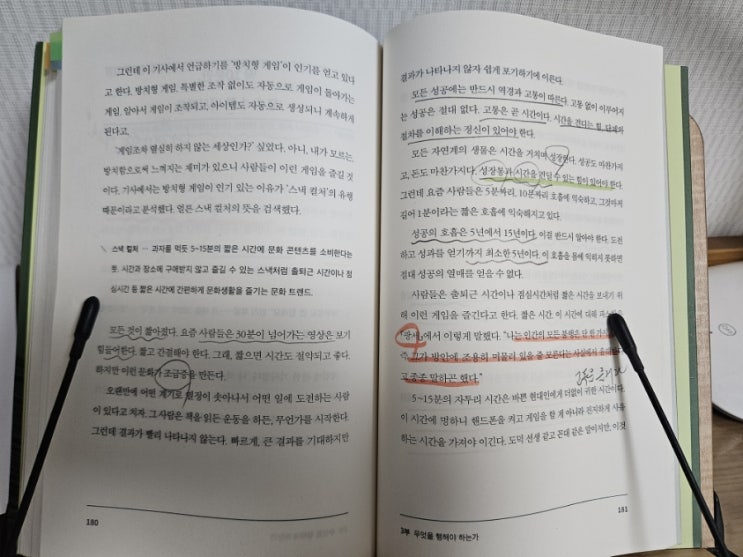 그런데 이 기사에서 언급하기를 '방치형 게임'이 인기를 얻고 있다
고 한다. 방치형 게임. 특별한 조작 없이도 자동으로 게임이 돌아가는
게임. 알아서 게임이 조작되고, 아이템도 자동으로 생상되니 계속하게
된다고.
'게임조차 열심히 하지 않는 세상인가?' 싶었다. 아니, 내가 모르는,
방치함으로써 느껴지는 재미가 있으니 사람들이 이런 게임을 즐길 것
이다. 기사에서는 방치형 게임이 인기 있는 이유가 '스낵 컬처'의 유행
때문이라고 분석했다. 얼른 스낵 컬처의 뜻을 검색했다.
스낵 컬처 … 과자를 먹듯 5~15분의 짧은 시간에 문화 콘텐츠를 소비한다는
뜻. 시간과 장소에 구애받지 않고 즐길 수 있는 스낵처럼 출퇴근 시간이나 점
심시간 등 짧은 시간에 간편하게 문화생활을 즐기는 문화 트렌드.
모든 것이 짧아졌다. 요즘 사람들은 30분이 넘어가는 영상은 보기
힘들어한다. 짧고 간결해야 한다. 그래, 짧으면 시간도 절약되고 좋다.
하지만 이런 문화가 조급증을 만든다.
오랜만에 어떤 계기로 열정이 솟아나서 어떤 일에 도전하는 사람
이 있다고 치자. 그 사람은 책을 읽든 운동을 하든, 무언가를 시작한다.
그런데 결과가 빨리 나타나지 않는다. 빠르게, 큰 결과를 기대하지만
180
결과가 나타나지 않자 쉽게 포기하기에 이른다.
모든 성공에는 반드시 역경과 고통이 따른다. 고통 없이 이루어지
는 성공은 절대 없다. 고통은 곧 시간이다. 시간을 견디는 힘, 단계와
절차를 이해하는 정신이 있어야 한다.
모든 자연계의 생물은 시간을 거치며 성장한다. 성공도 마찬가지
고, 돈도 마찬가지다. 성장통과 시간을 견딜 수 있는 힘이 있어야 한다.
그런데 요즘 사람들은 5분짜리, 10분짜리 호흡에 익숙하고, 그것마저
길어 1분이라는 짧은 호흡에 익숙해지고 있다.
성공의 호흡은 5년에서 15년이다. 이걸 반드시 알아야 한다. 도전
하고 성과를 얻기까지 최소한 5년이다. 이 호흡을 몸에 익히지 못하면
절대 성공의 열매를 얻을 수 없다.
사람들은 출퇴근 시간이나 점심시간처럼 짧은 시간을 보내기 위
해 이런 게임을 즐긴다고 한다. 짧은 시간. 이 시간에 대해 파스칼은
『팡세』에서 이렇게 말했다. "나는 인간의 모든 불행은 단 한 가지
즉 그가 방안에 조용히 머물러 있을 줄 모른다는 사실에서
고 종종 말하곤 했다."
5~15분의 자투리 시간은 바쁜 현대인에게 더없이 귀한 시간이다.
이 시간에 멍하니 핸드폰을 켜고 게임을 할 게 아니라 진지하게 사유
하는 시간을 가져야 이긴다. 도덕 선생 같고 꼰대 같은 말이지만, 이것
3부 무엇을 행해야 하는가
181